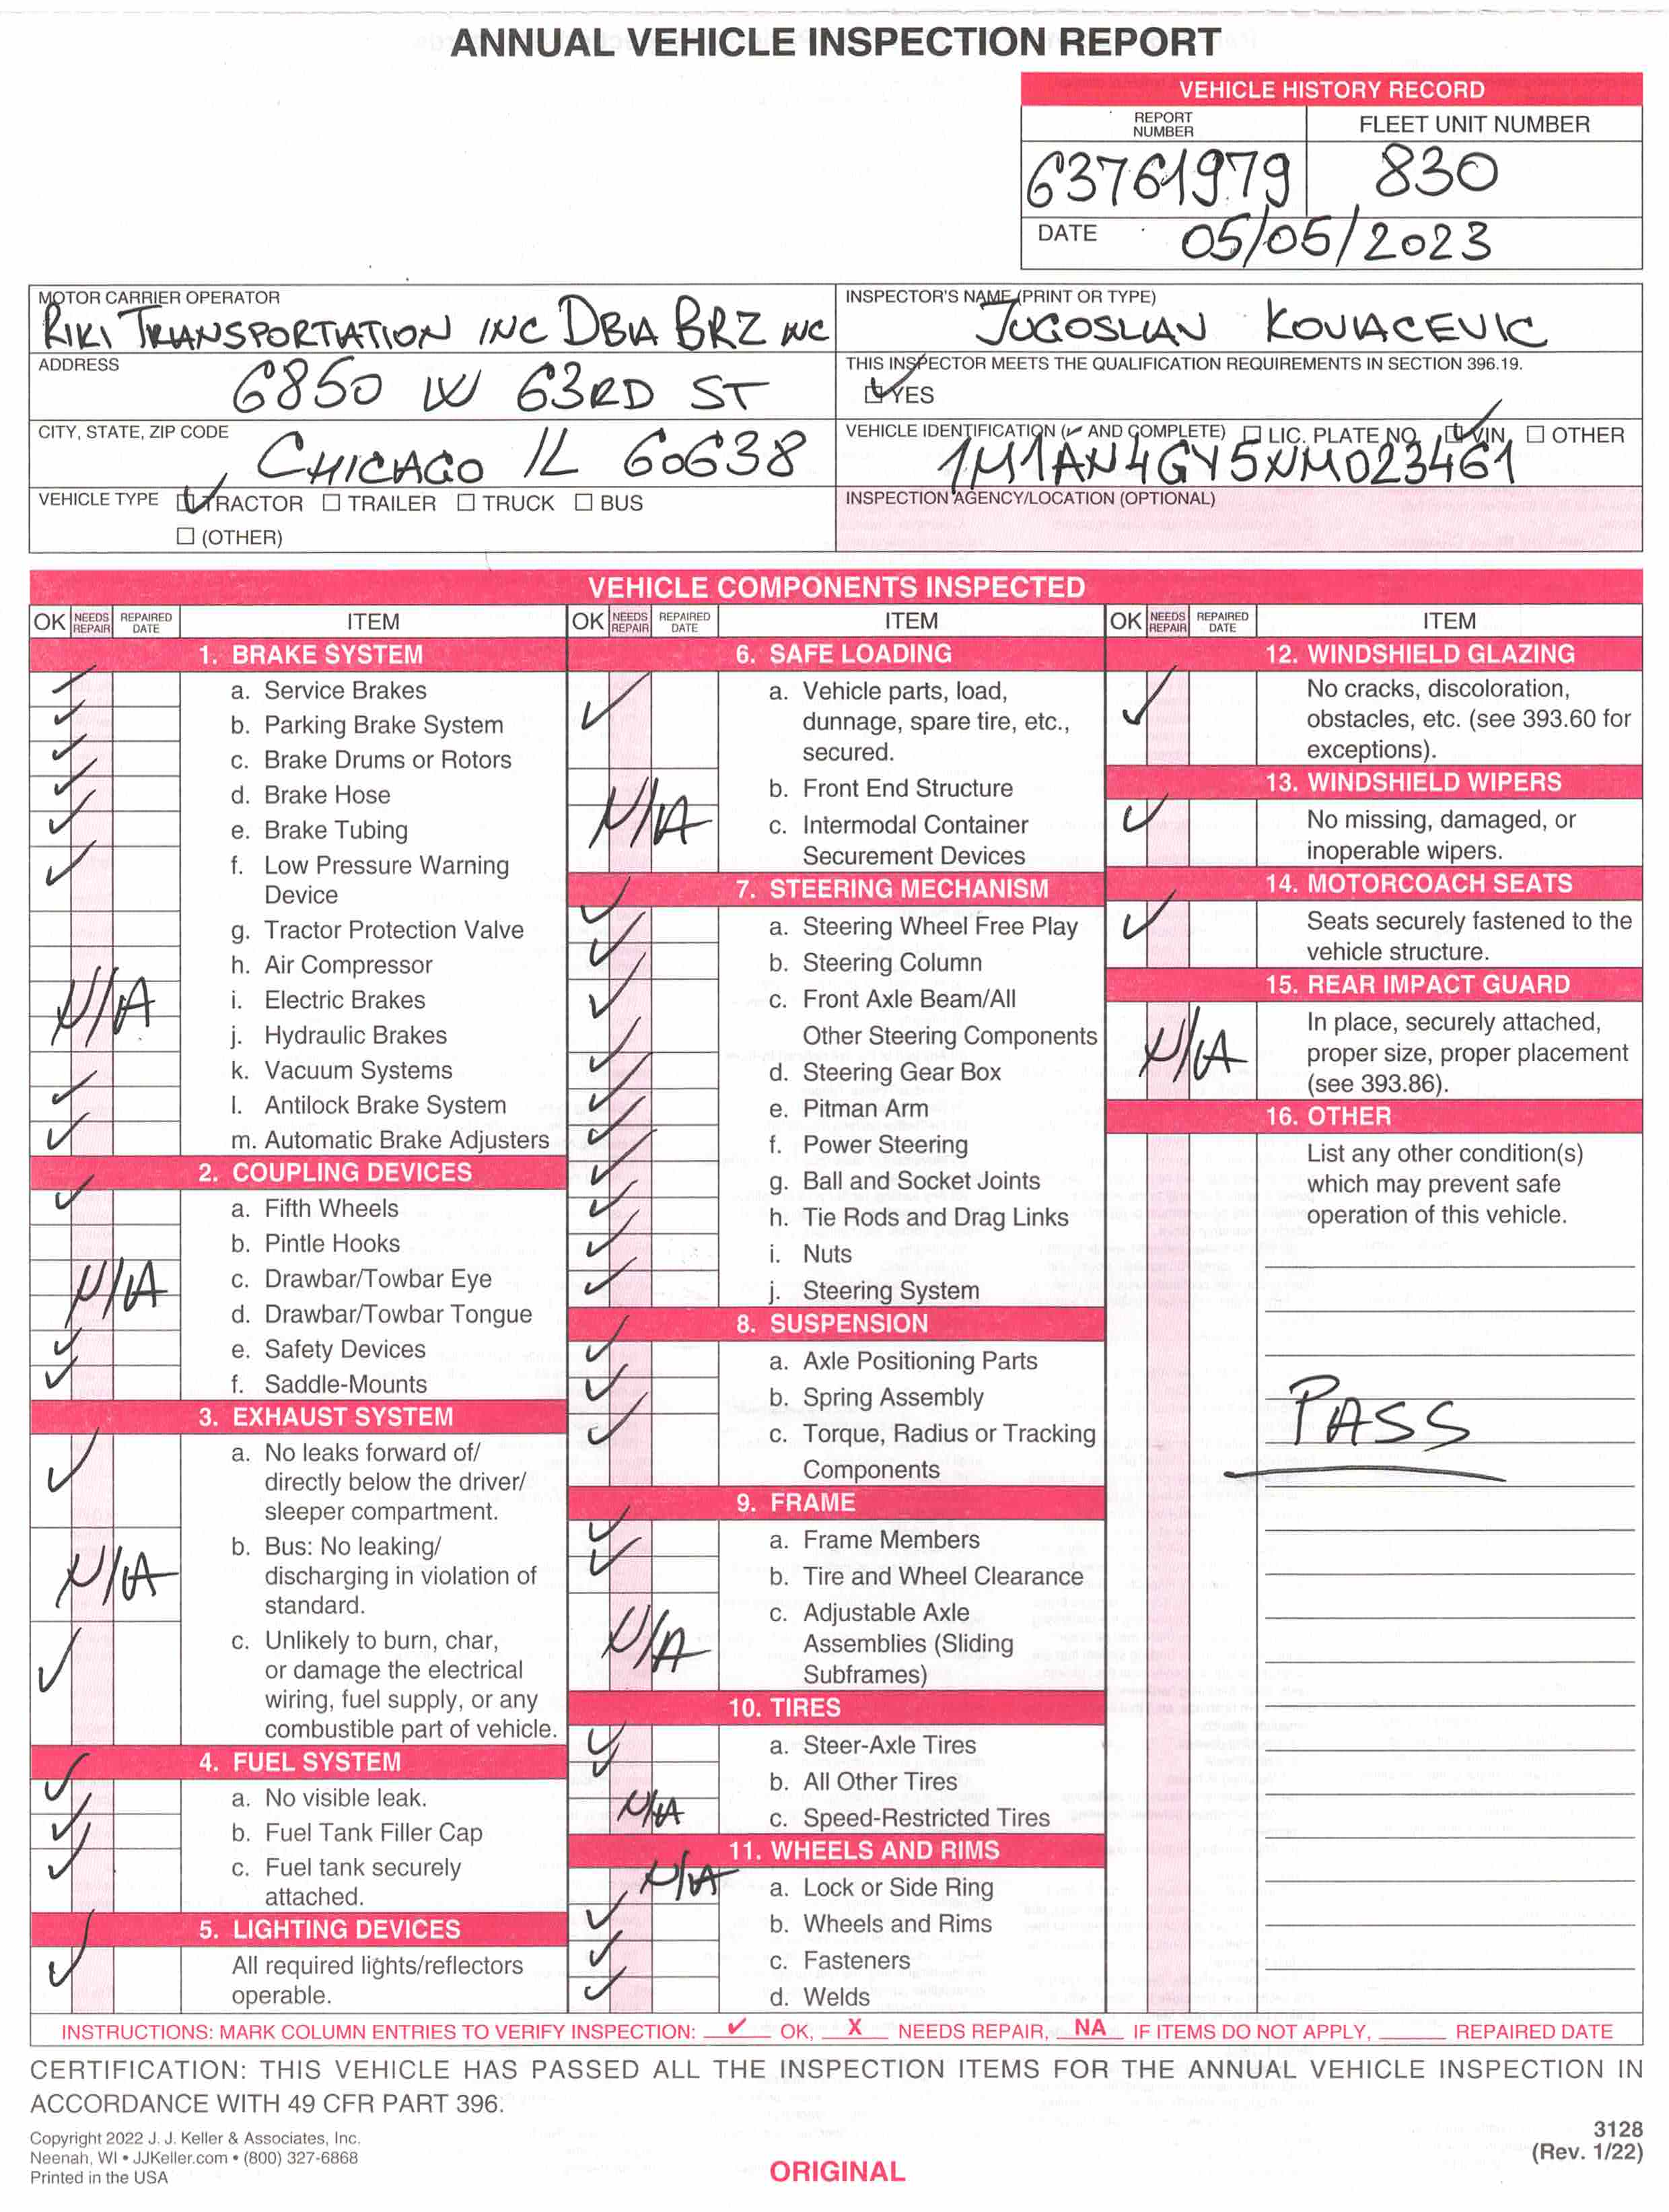 ANNUAL VEHICLE INSPECTION REPORT
VEHICLE HISTORY RECORD
REPORT NUMBER
FLEET UNIT NUMBER
63761979
830
DATE 05/05/2023
MOTOR CARRIER OPERATOR
RIKI TRANSPORTATION INC DBA BRZ INC
INSPECTOR'S NAME (PRINT OR TYPE)
JUGOSLAN KOVACEVIC
ADDRESS
6850 W 63RD ST
THIS INSPECTOR MEETS THE QUALIFICATION REQUIREMENTS IN SECTION 396.19.
☑ YES
CITY, STATE, ZIP CODE
CHICAGO IL 60638
VEHICLE IDENTIFICATION (✓ AND COMPLETE) ☐ LIC. PLATE NO. ☑ VIN ☐ OTHER
1M1AN4GY5NM023461
VEHICLE TYPE ☑ TRACTOR ☐ TRAILER ☐ TRUCK ☐ BUS
☐ (OTHER)
INSPECTION AGENCY/LOCATION (OPTIONAL)
VEHICLE COMPONENTS INSPECTED
OK NEEDS REPAIR REPAIRED DATE ITEM
1. BRAKE SYSTEM
✓ a. Service Brakes
✓ b. Parking Brake System
✓ c. Brake Drums or Rotors
✓ d. Brake Hose
✓ e. Brake Tubing
✓ f. Low Pressure Warning
Device
g. Tractor Protection Valve
h. Air Compressor
N/A i. Electric Brakes
j. Hydraulic Brakes
k. Vacuum Systems
✓ l. Antilock Brake System
✓ m. Automatic Brake Adjusters
2. COUPLING DEVICES
✓ a. Fifth Wheels
b. Pintle Hooks
N/A c. Drawbar/Towbar Eye
d. Drawbar/Towbar Tongue
✓ e. Safety Devices
✓ f. Saddle-Mounts
3. EXHAUST SYSTEM
✓ a. No leaks forward of/
directly below the driver/
sleeper compartment.
N/A b. Bus: No leaking/
discharging in violation of
standard.
✓ c. Unlikely to burn, char,
or damage the electrical
wiring, fuel supply, or any
combustible part of vehicle.
4. FUEL SYSTEM
✓ a. No visible leak.
✓ b. Fuel Tank Filler Cap
✓ c. Fuel tank securely
attached.
5. LIGHTING DEVICES
✓ All required lights/reflectors
operable.
OK NEEDS REPAIR REPAIRED DATE ITEM
6. SAFE LOADING
✓ a. Vehicle parts, load,
dunnage, spare tire, etc.,
secured.
b. Front End Structure
N/A c. Intermodal Container
Securement Devices
7. STEERING MECHANISM
✓ a. Steering Wheel Free Play
✓ b. Steering Column
✓ c. Front Axle Beam/All
Other Steering Components
✓ d. Steering Gear Box
✓ e. Pitman Arm
✓ f. Power Steering
✓ g. Ball and Socket Joints
✓ h. Tie Rods and Drag Links
✓ i. Nuts
✓ j. Steering System
8. SUSPENSION
✓ a. Axle Positioning Parts
✓ b. Spring Assembly
✓ c. Torque, Radius or Tracking
Components
9. FRAME
✓ a. Frame Members
✓ b. Tire and Wheel Clearance
N/A c. Adjustable Axle
Assemblies (Sliding
Subframes)
10. TIRES
✓ a. Steer-Axle Tires
✓ b. All Other Tires
N/A c. Speed-Restricted Tires
11. WHEELS AND RIMS
N/A a. Lock or Side Ring
✓ b. Wheels and Rims
✓ c. Fasteners
✓ d. Welds
OK NEEDS REPAIR REPAIRED DATE ITEM
12. WINDSHIELD GLAZING
✓ No cracks, discoloration,
obstacles, etc. (see 393.60 for
exceptions).
13. WINDSHIELD WIPERS
✓ No missing, damaged, or
inoperable wipers.
14. MOTORCOACH SEATS
✓ Seats securely fastened to the
vehicle structure.
15. REAR IMPACT GUARD
N/A In place, securely attached,
proper size, proper placement
(see 393.86).
16. OTHER
List any other condition(s)
which may prevent safe
operation of this vehicle.
PASS
INSTRUCTIONS: MARK COLUMN ENTRIES TO VERIFY INSPECTION: ✓ OK, X NEEDS REPAIR, NA IF ITEMS DO NOT APPLY, ____ REPAIRED DATE
CERTIFICATION: THIS VEHICLE HAS PASSED ALL THE INSPECTION ITEMS FOR THE ANNUAL VEHICLE INSPECTION IN
ACCORDANCE WITH 49 CFR PART 396.
Copyright 2022 J. J. Keller & Associates, Inc.
Neenah, WI • JJKeller.com • (800) 327-6868
Printed in the USA
ORIGINAL
3128
(Rev. 1/22)